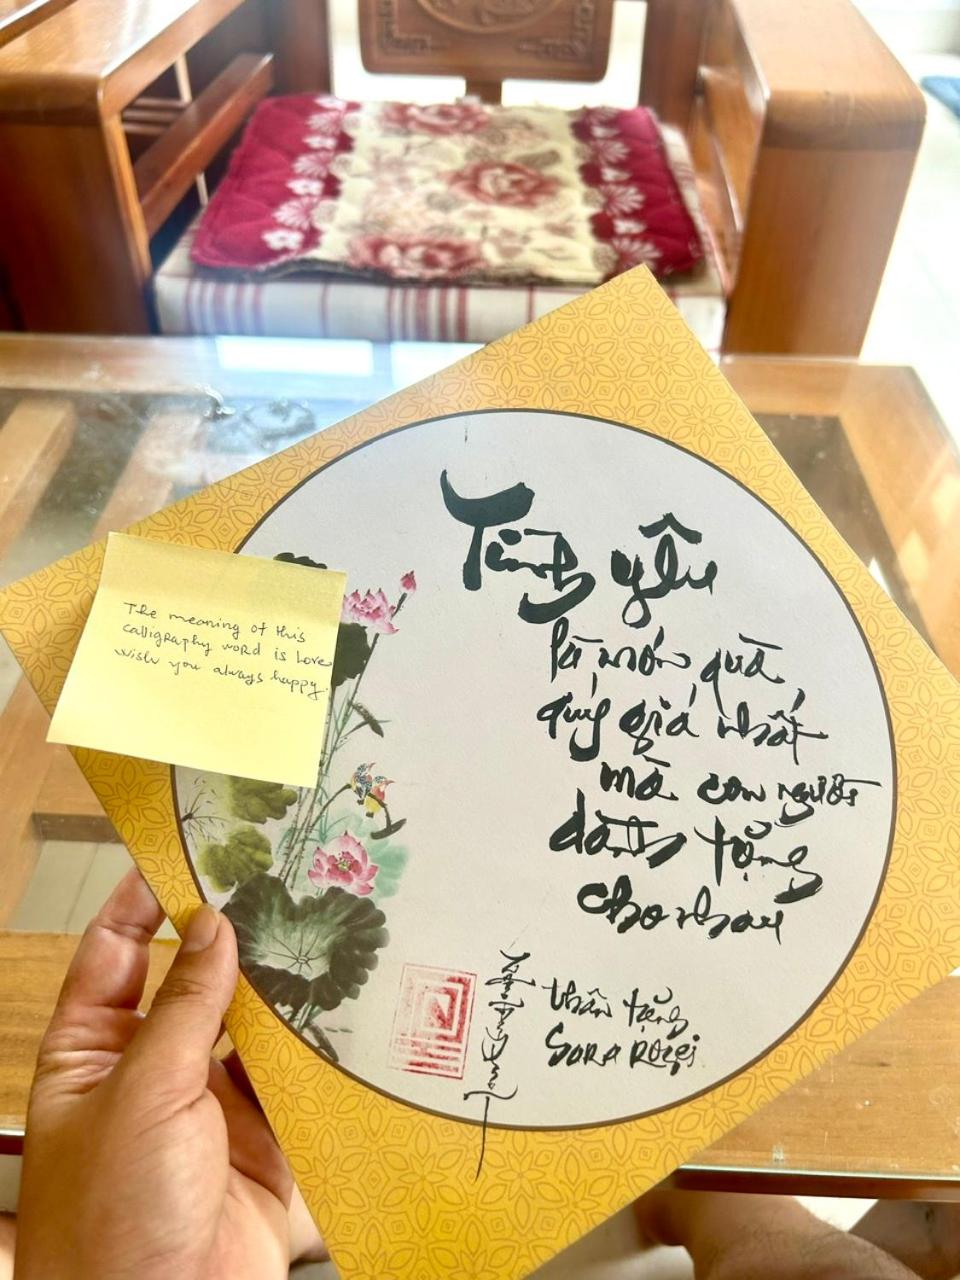 The meaning of this
calligraphy word is Love
wish you always happy.
Tình yêu
là món quà
quý giá nhất
mà con người
dành tặng
cho nhau
thân tặng
SORA ROZEI